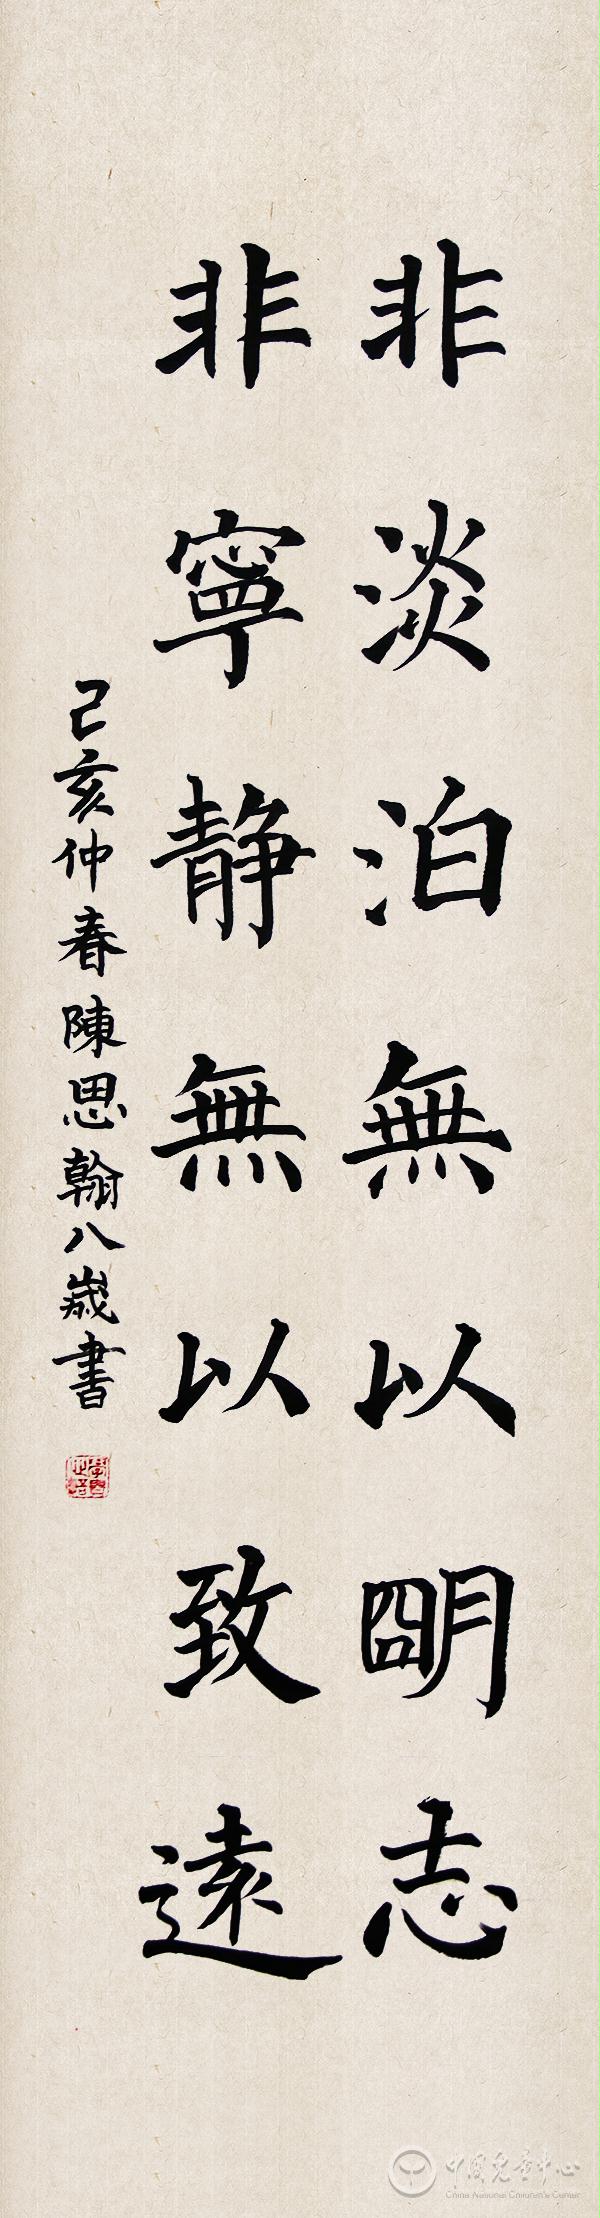 非淡泊無以明志
非寧静無以致遠
己亥仲春陳思翰八歲書
中国儿童中心
China National Children's Center